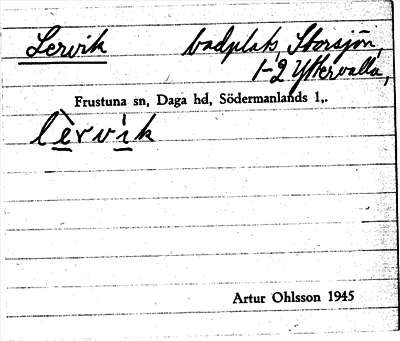 Lervik badplats, Storsjön,
1-2 Yttervalla,
Frustuna sn, Daga hd, Södermanlands l,.
lèrvik
Artur Ohlsson 1945